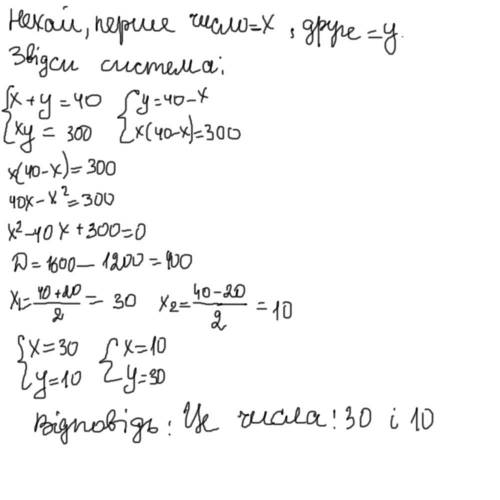 Нехай, перше число=x, друге =y.
Звідси система:
{x+y=40 {y=40-x
{xy=300 {x(40-x)=300
x(40-x)=300
40x-x²=300
x²-40x+300=0
D=1600-1200=400
x₁=(40+20)/2=30 x₂=(40-20)/2=10
{x=30 {x=10
{y=10 {y=30
Відповідь: Це числа: 30 і 10